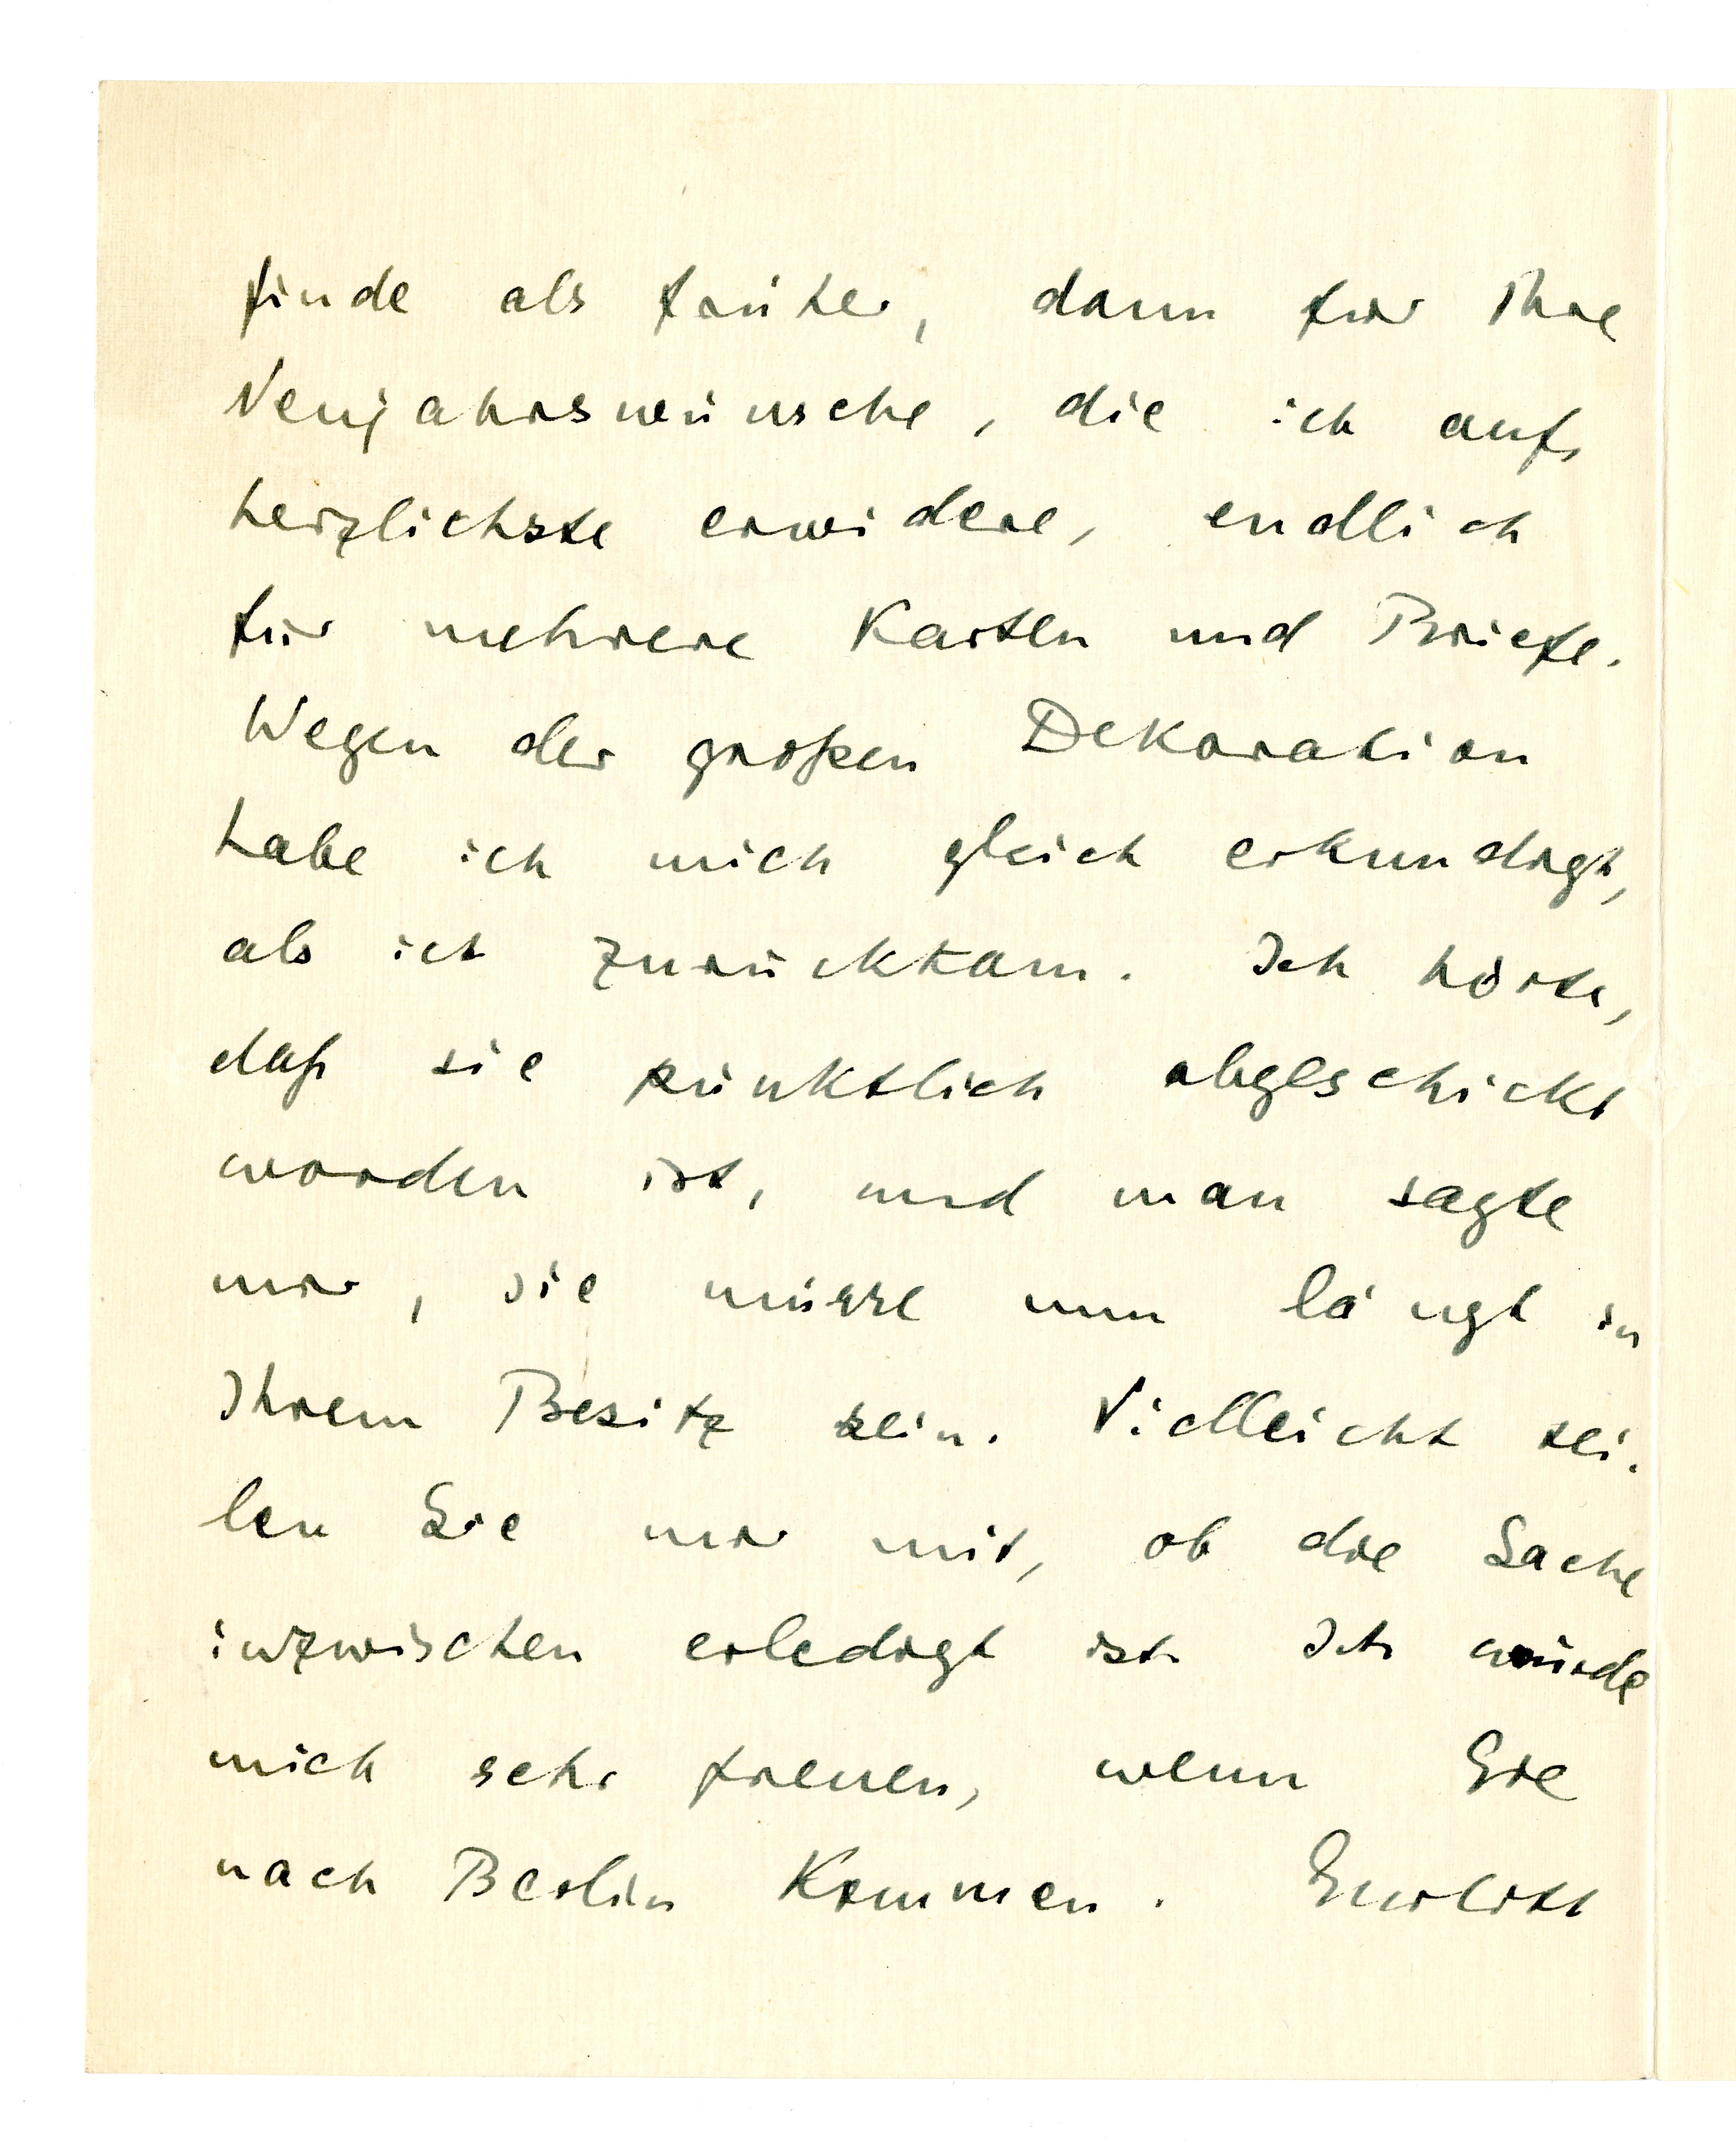 finde als früher, dann für Ihre
Neujahrswünsche, die ich aufs
herzlichste erwidere, endlich
für mehrere Karten und Briefe.
Wegen der großen Dekoration
habe ich mich gleich erkundigt,
als ich zurückkam. Ich hörte,
daß sie pünktlich abgeschickt
worden ist, und man sagte
mir, sie müsse nun längt in
Ihrem Besitz sein. Vielleicht tei-
len Sie mir mit, ob die Sache
inzwischen erledigt ist. Ich würde
mich sehr freuen, wenn Sie
nach Berlin kommen.